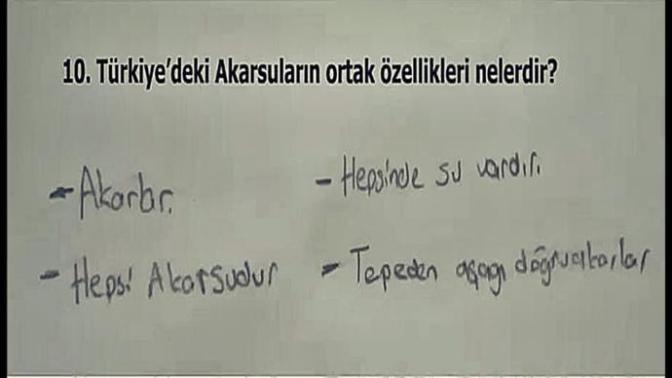 10. Türkiye'deki Akarsuların ortak özellikleri nelerdir?
- Akarlar.
- Hepsinde su vardır.
- Hepsi Akarsudur
- Tepeden aşağı doğru akarlar